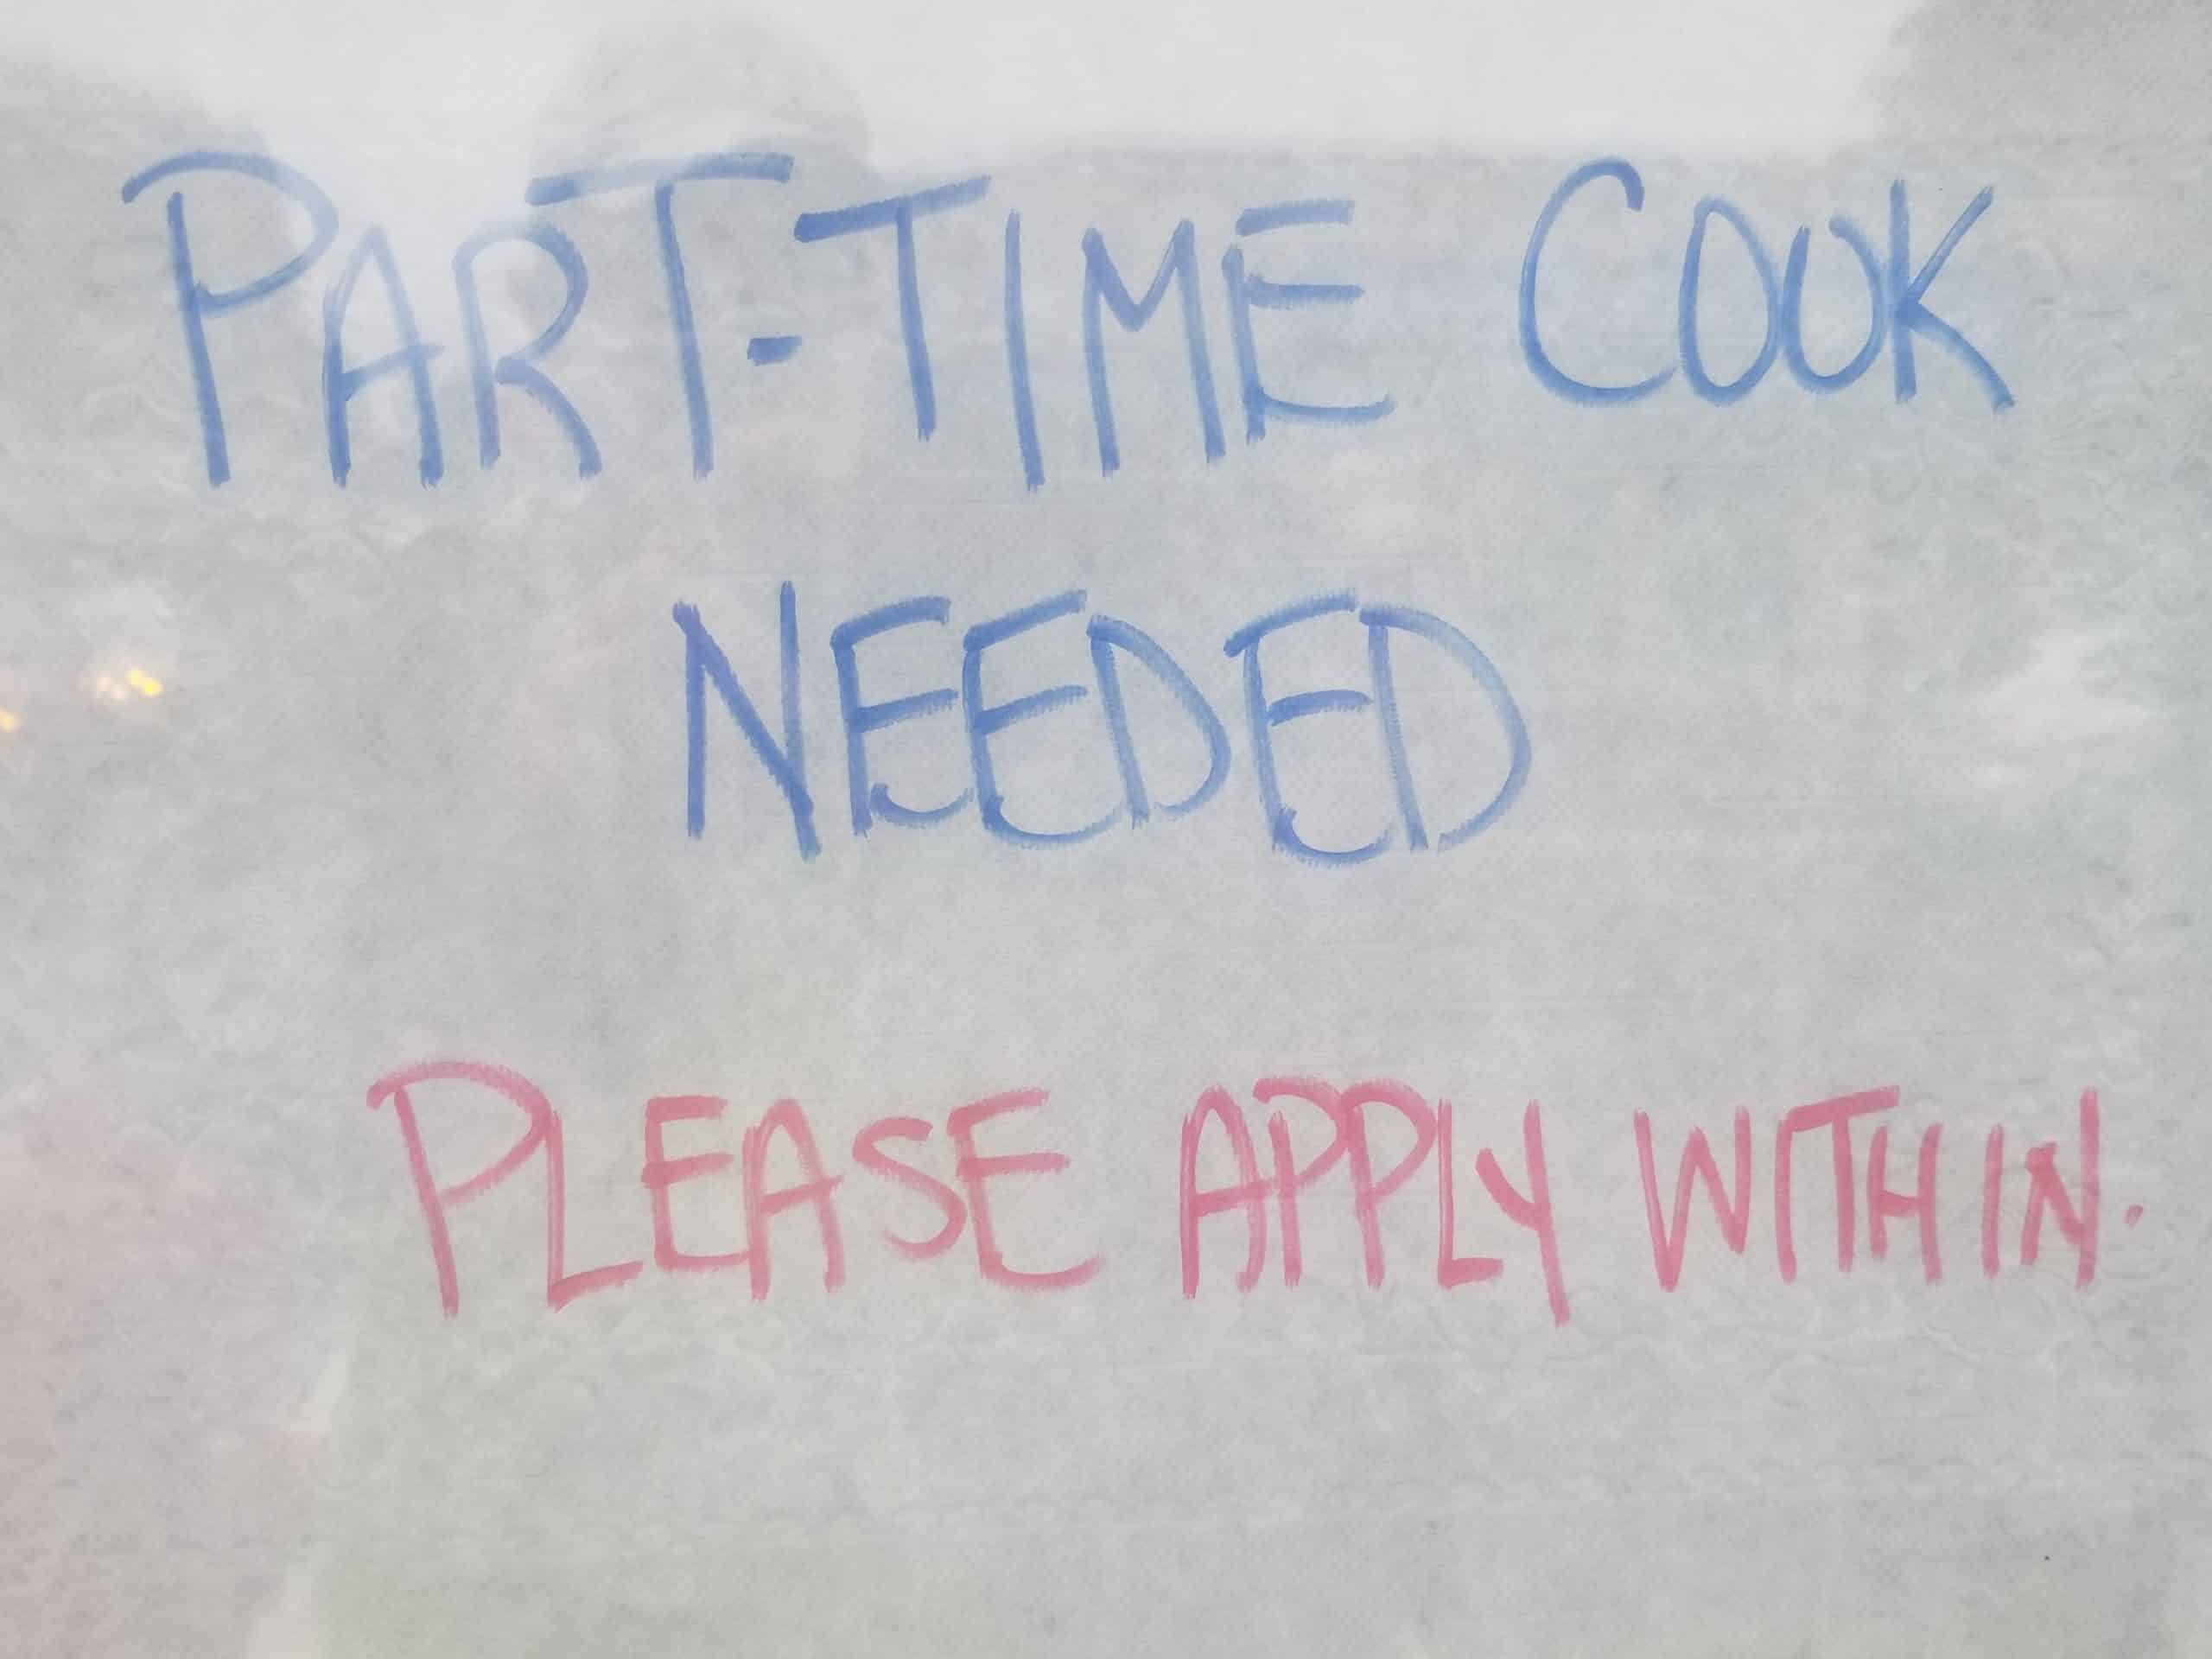 PART-TIME COOK
NEEDED
PLEASE APPLY WITHIN.